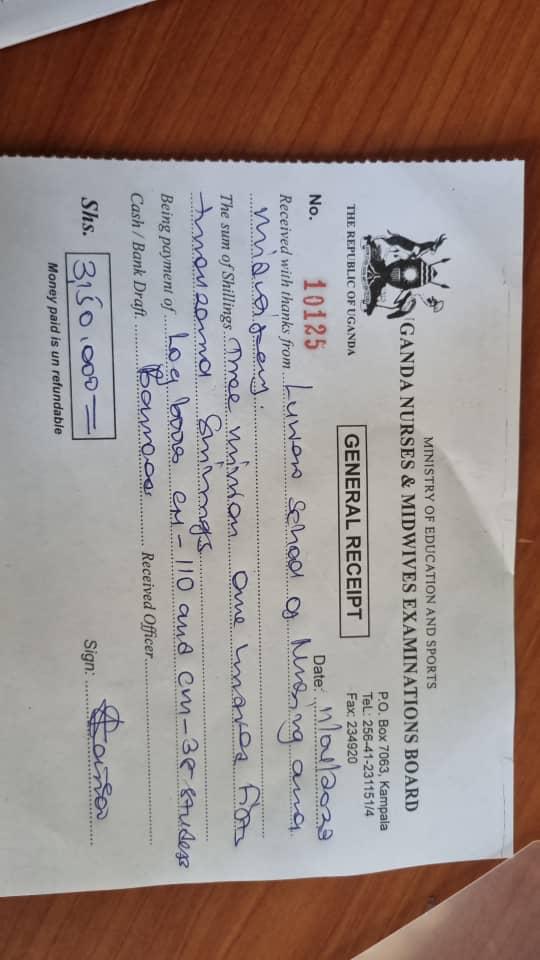 MINISTRY OF EDUCATION AND SPORTS
GANDA NURSES & MIDWIVES EXAMINATIONS BOARD
P.O. Box 7063, Kampala
Tel.: 256-41-231151/4
Fax: 234920
THE REPUBLIC OF UGANDA
GENERAL RECEIPT
No. 10125 Date: 2022
Received with thanks from Luwero School of Nursing and
Midwifery.
The sum of Shillings Three million one hundred fifty
thousand Shillings
Being payment of Log books CM-110 and CM-
Cash / Bank Draft Received Officer
Shs. 3,150,000= Sign:
Money paid is un refundable